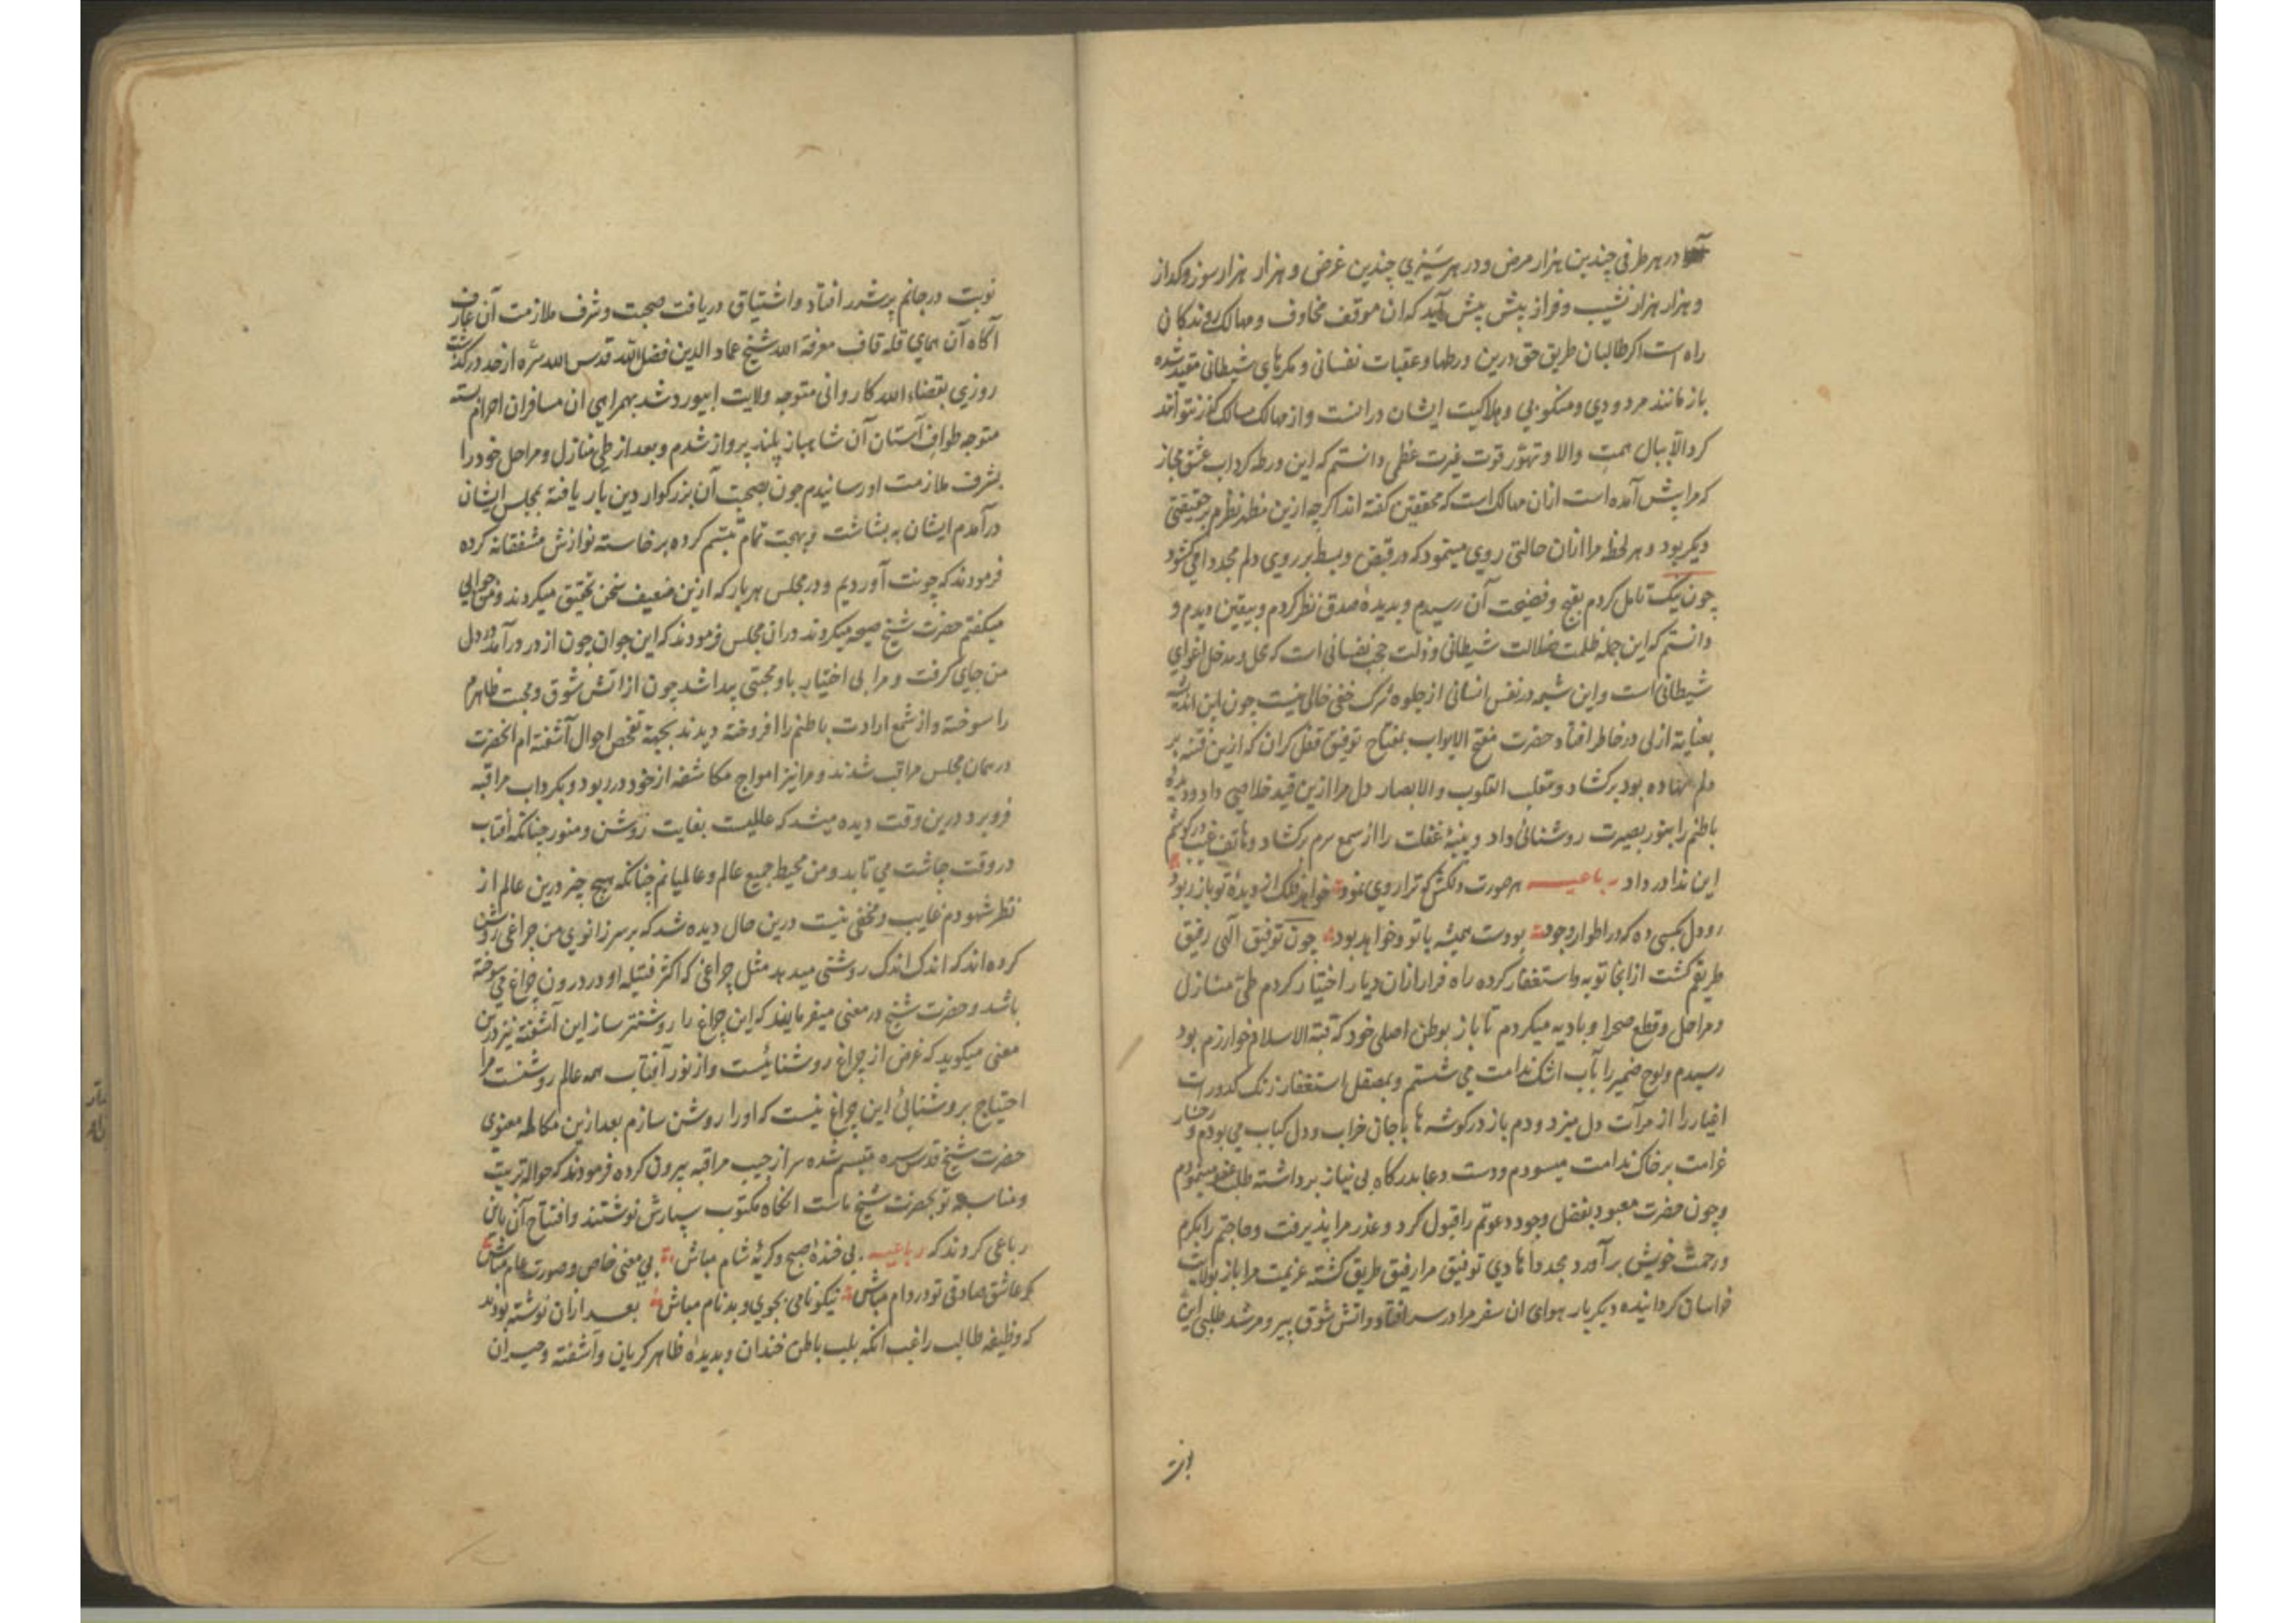 در هر طرفی چندین هزار مرض و در هر سَیزی چندین غرض و هزار هزار سوز و کداز
و هزار هزار نشیب و فراز پیش پیش آید که ان موقف مخاوف و مهالک روندکان
راه است اکر طالبان طریق حق درین ورطها و عقبات نفسانی و مکرهای شیطانی مقید شده
باز مانند مردودی و منکوبی و هلاکیت ایشان درانست و از مهالک مسالک کذر نتواند
کرد الا ببال همت والا و تهور قوت غیرت عظمی دانستم که این ورطه کرداب عشق مجاز
که مرا پیش آمده است ازان مهالک است که محققین کفته اند اکرچه ازین منظر نظرم بر حقیقتی
دیکر بود و هر لحظه مرا ازان حالتی روی مینمود که در قبض و بسط بر روی دلم مجدد امی کشود
چون نیک تامل کردم بقبح و فضیحت آن رسیدم و بدیدۀ صدق نظر کردم و بیقین دیدم و
دانستم که این جمله ظلمت ضلالت شیطانی و ذلت حجب نفسانی است که محل و مدخل اغوای
شیطانی است و این شیوه در نفس انسانی از جلوه شرک خفی خالی نیست چون این اندیشه
بعنایة ازلی در خاطر افتاد حضرت مفتح الابواب بمفتاح توفیق قفل کران که ازین فتنه بر
دلم نهاده بود برکشاد و مقلب القلوب والابصار دل مرا ازین قید خلاصی داد و دیدۀ
باطنم را بنور بصیرت روشنائی داد و پنبۀ غفلت را از سمع سرم برکشاد و هاتف غیب در کوشم
این ندا در داد رباعیه هر صورت دلکش که ترا روی نمود خواهد فلک از دیدۀ تو باز ربود
رو دل بکسی ده که در اطوار وجود بودست همیشه با تو و خواهد بود چون توفیق الهی رفیق
طریقم کشت از انجا توبه و استغفار کرده راه فرار ازان دیار اختیار کردم طی منازل
و مراحل و قطع صحرا و بادیه میکردم تا باز بوطن اصلی خود که قبة الاسلام خوارزم بود
رسیدم و لوح ضمیر را بآب اشک ندامت می شستم و بمصقل استغفار زنک کدورات
اغیار را از مرآت دل میزدودم باز در کوشه ها با جان خراب و دل کباب می بودم و رخسار
غرامت بر خاک ندامت میسودم و دست دعا بدرکاه بی نیاز برداشته طلب عفو مینمودم
و چون حضرت معبود بفضل وجود دعوتم را قبول کرد و عذر مرا پذیرفت و حاجتم را بکرم
و رحمت خویش برآورد مجددا هادی توفیق مرا رفیق طریق کشته عزیمت مرا باز بولایت
خراسان کردانیده دیکر بار هوای ان سفر مرا در سر افتاد و اتش شوق پیر و مرشد طلبی این
نوبت
نوبت در جانم پر شرر افتاد و اشتیاق دریافت صحبت و شرف ملازمت آن عارف
آکاه آن همای قله قاف معرفة الله شیخ عماد الدین فضل الله قدس الله سره از حد درکذشت
روزی بقضاء الله کاروانی متوجه ولایت ابیورد شد بهمراهی ان مسافران احرام بسته
متوجه طواف آستان آن شاهباز بلند پرواز شدم و بعد از طی منازل و مراحل خود را
بشرف ملازمت او رسانیدم چون بصحبت آن بزرکوار دین بار یافته بمجلس ایشان
درآمدم ایشان به بشاشت و بهجت تمام تبسم کرده برخاسته نوازش مشفقانه کرده
فرمودند که چونت آوردیم و در مجلس هر بار که ازین ضعیف سخن تحقیق میکردند و من جوابی
میکفتم حضرت شیخ صیحه میکردند دران مجلس فرمودند که این جوان چون از در درآمد در دل
من جای کرفت و مرا بی اختیار باو محبتی پیدا شد چون از اتش شوق و محبت ظاهرم
را سوخته و از شمع ارادت باطنم را افروخته دیدند بجهة تفحص احوال آشفته ام انحضرت
در همان مجلس مراقب شدند و مرا نیز امواج مکاشفه از خود در ربود و بکرداب مراقبه
فرو برد درین وقت دیده میشد که عالمیست بغایت روشن و منور چنانکه افتاب
در وقت چاشت می تابد و من محیط جمیع عالم و عالمیانم چنانکه هیچ چیز درین عالم از
نظر شهودم غایب و مخفی نیست درین حال دیده شد که بر سر زانوی من چراغی روشن
کرده اند که اندک اندک روشنی میدهد مثل چراغی که اکثر فتیله او در درون چراغ می سوخته
باشد و حضرت شیخ در معنی میفرمایند که این چراغ را روشنتر ساز این آشفته نیز درین
معنی میکوید که غرض از چراغ روشنائیست و از نور آفتاب همه عالم روشنست مرا
احتیاج بروشنائی این چراغ نیست که او را روشن سازم بعد ازین مکالمه معنوی
حضرت شیخ قدس سره متبسم شده سر از جیب مراقبه بیرون کرده فرمودند که حواله تربیت
و مناسبه تو بحضرت شیخ ماست انکاه مکتوب سپارش نوشتند و افتتاح آن باین
رباعی کردند که رباعیه بی خندۀ صبح و کریۀ شام مباش بی معنی خاص و صورت عام مباش
کر عاشق صادقی تو در دام مباش نیکو نامی بجوی و بدنام مباش بعد ازان نوشته بودند
که وظیفه طالب راغب انکه بلب باطن خندان و بدیدۀ ظاهر کریان و آشفته و حیران